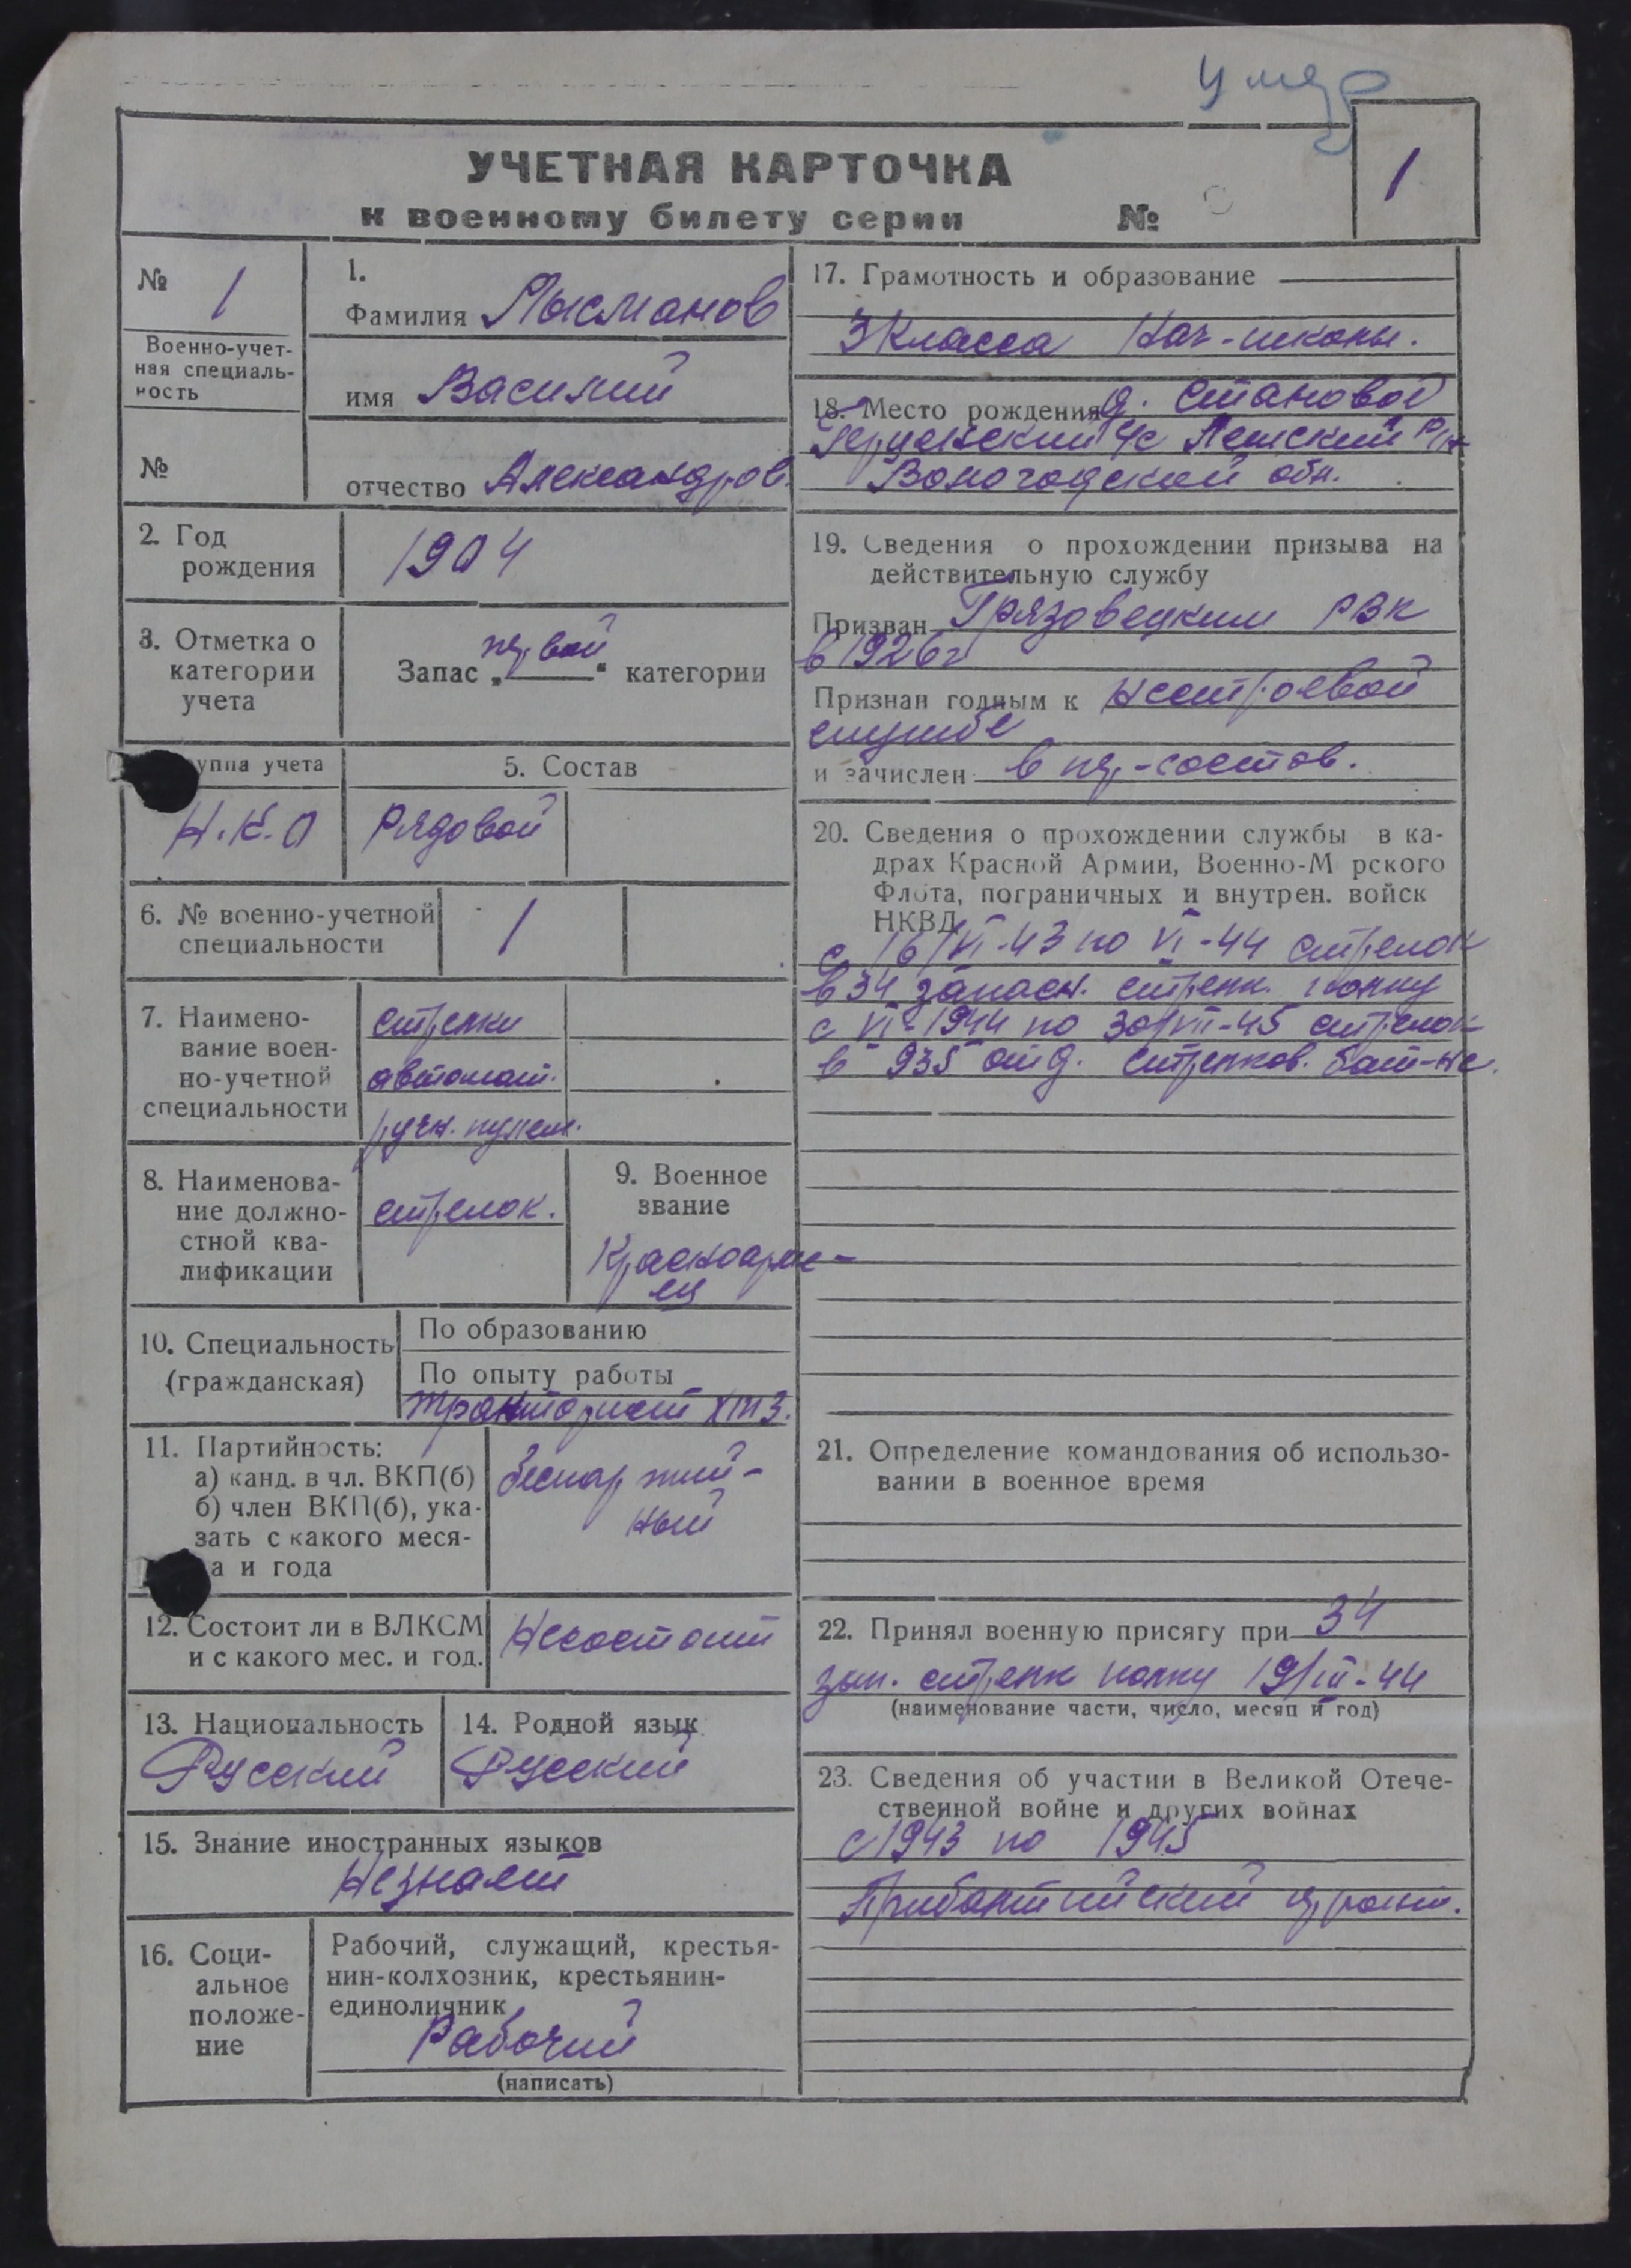 умер
УЧЕТНАЯ КАРТОЧКА
к военному билету серии №
1
№ 1
Военно-учет-
ная специаль-
ность
№
1.
Фамилия Лысманов
имя Василий
отчество Александров.
2. Год
рождения
1904
3. Отметка о
категории
учета
Запас „первой“ категории
уппа учета
Н.К.О
5. Состав
Рядовой
6. № военно-учетной
специальности
1
7. Наимено-
вание воен-
но-учетной
специальности
стрелки
автомат.
ручн. пулем.
8. Наименова-
ние должно-
стной ква-
лификации
стрелок.
9. Военное
звание
Красноарме-
ец
10. Специальность
(гражданская)
По образованию
По опыту работы
тракторист ХТЗ.
11. Партийность:
а) канд. в чл. ВКП(б)
б) член ВКП(б), ука-
зать с какого меся-
а и года
беспартий-
ный
12. Состоит ли в ВЛКСМ
и с какого мес. и год.
Несостоит
13. Национальность
Русский
14. Родной язык
Русский
15. Знание иностранных языков
Незнает
16. Соци-
альное
положе-
ние
Рабочий, служащий, крестья-
нин-колхозник, крестьянин-
единоличник
Рабочий
(написать)
17. Грамотность и образование
3 класса Нач-школы.
18. Место рождения д. Становой
с/с Лежский р/н
Вологодской обл.
19. Сведения о прохождении призыва на
действительную службу
Призван Грязовецким РВК
в 1926г
Признан годным к нестроевой
службе
и зачислен в пер-состав.
20. Сведения о прохождении службы в ка-
драх Красной Армии, Военно-М рского
Флота, пограничных и внутрен. войск
НКВД
с 16/VI-43 по VI-44 стрелок
в 34 запасн. стрелк. полку
с VI-1944 по 30/VII-45 стрелок
в 935 отд. стрелков. бат-не.
21. Определение командования об использо-
вании в военное время
22. Принял военную присягу при 34
зап. стрелк полку 19/III-44
(наименование части, число, месяц и год)
23. Сведения об участии в Великой Отече-
ственной войне и других войнах
с 1943 по 1945
Прибалтийский фронт.